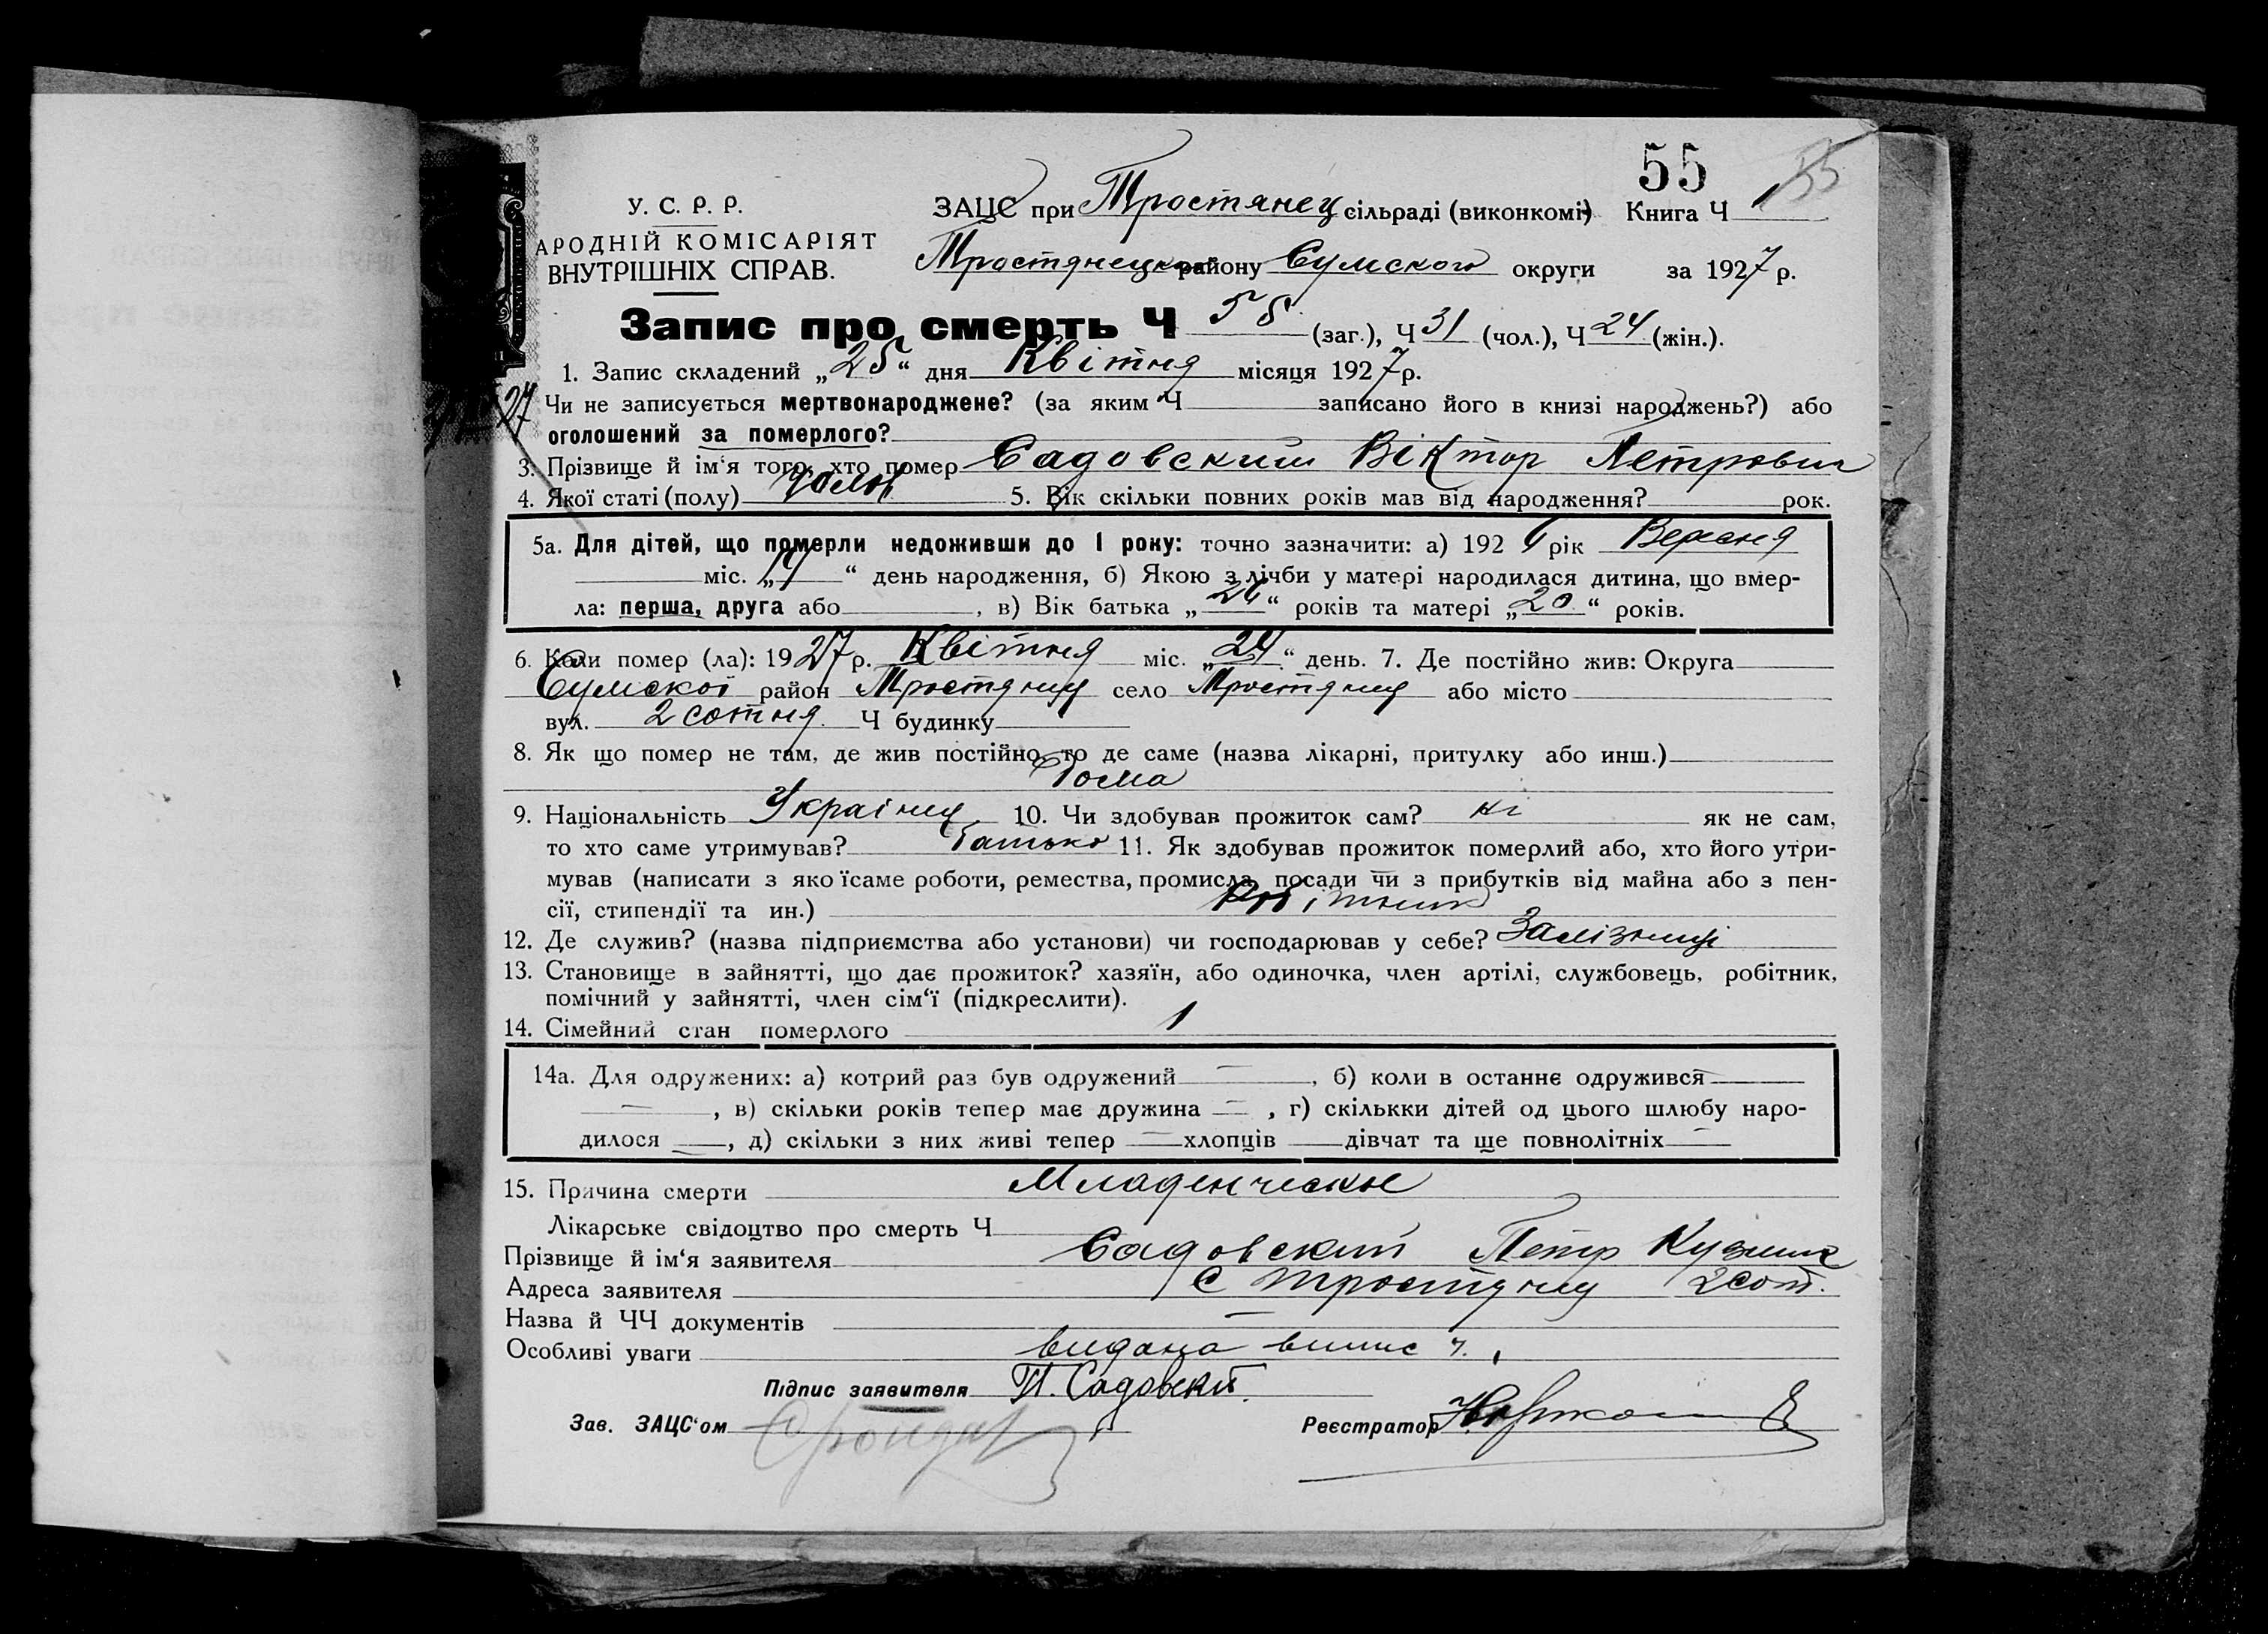 55 55
У. С. Р. Р.
ЗАЦС при Тростянец сільраді (виконкомі) Книга Ч 1
АРОДНІЙ КОМІСАРІЯТ
ВНУТРІШНІХ СПРАВ.
Тростянецком району Сумского округи за 1927 р.
Запис про смерть Ч 55 (заг.), Ч 31 (чол.), Ч 24 (жін.).
1. Запис складений „25“ дня Квітня місяця 1927 р.
27
Чи не записується мертвонароджене? (за яким Ч записано його в книзі народжень?) або
оголошений за померлого?
3. Прізвище й ім‘я того, хто помер Садовский Віктор Петрович
4. Якої статі (полу) чолов 5. Вік скільки повних років мав від народження? рок.
5а. Для дітей, що померли недоживши до 1 року: точно зазначити: а) 1926 рік Вересня
міс. „ “ день народження, б) Якою з лічби у матері народилася дитина, що вмер-
ла: перша, друга або , в) Вік батька „24“ років та матері „20“ років.
6. Коли помер (ла): 1927 р. Квітня міс. „24“ день. 7. Де постійно жив: Округа
Сумской район Тростянец село Тростянец або місто
вул. 2 сотня Ч будинку
8. Як що помер не там, де жив постійно, то де саме (назва лікарні, притулку або инш.)
Дома
9. Національність Українец 10. Чи здобував прожиток сам? ні як не сам,
то хто саме утримував? батько 11. Як здобував прожиток померлий або, хто його утри-
мував (написати з яко їсаме роботи, ремества, промисла, посади чи з прибутків від майна або з пен-
сії, стипендії та ин.) Робітник
12. Де служив? (назва підприємства або установи) чи господарював у себе? Залізниці
13. Становище в зайнятті, що дає прожиток? хазяїн, або одиночка, член артілі, службовець, робітник,
помічний у зайнятті, член сім‘ї (підкреслити).
14. Сімейний стан померлого 1
14а. Для одружених: а) котрий раз був одружений — , б) коли в останнє одружився
— , в) скільки років тепер має дружина — , г) скількки дітей од цього шлюбу наро-
дилося — , д) скільки з них живі тепер — хлопців дівчат та ще повнолітніх —
15. Причина смерти Младенческое
Лікарське свідоцтво про смерть Ч
Прізвище й ім‘я заявителя Садовский Петр Кузмич
Адреса заявителя С Тростянец 2 сот.
Назва й ЧЧ документів —
Особливі уваги видана випис ч. 1
Підпис заявителя П. Садовский
Зав. ЗАЦС‘ом
Реєстратор